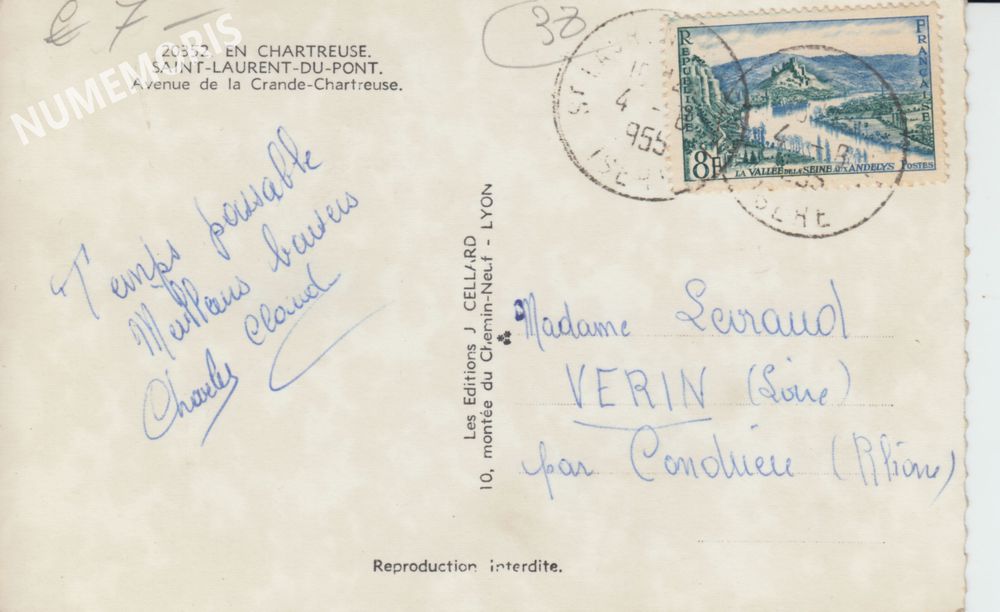 € 7 -
38
NUMEMORIS
20352. EN CHARTREUSE.
SAINT-LAURENT-DU-PONT.
Avenue de la Grande-Chartreuse.
REPUBLIQUE FRANÇAISE
8F
LA VALLÉE DE LA SEINE AUX ANDELYS POSTES
ST LAUR
4 -
955
ISERE
4 - 8
ISERE
Temps passable
Meilleurs baisers
Charles Claud
Les Editions J CELLARD
10, montée du Chemin-Neuf - LYON
Madame
VERIN (Loire)
par Condrieu (Rhône)
Reproduction interdite.